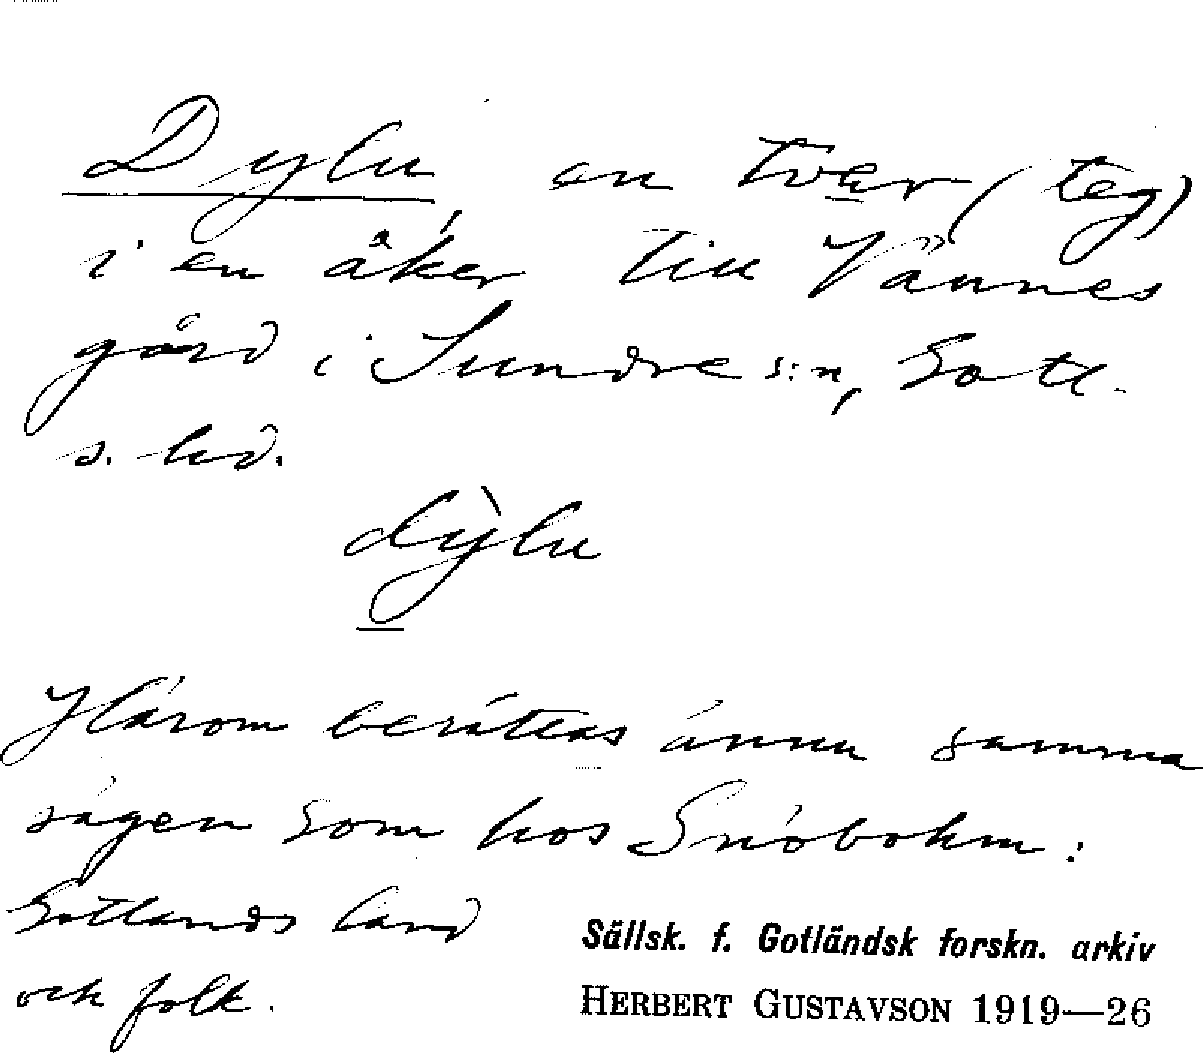 Dylu en tver (teg)
i en åker till Vännes
gård i Sundre s:n, Gotl.
s. hd.
dỳlu
Härom berättas ännu samma
sägen som hos Snöbohm:
Gotlands land
och folk.
Sällsk. f. Gotländsk forskn. arkiv
HERBERT GUSTAVSON 1919—26